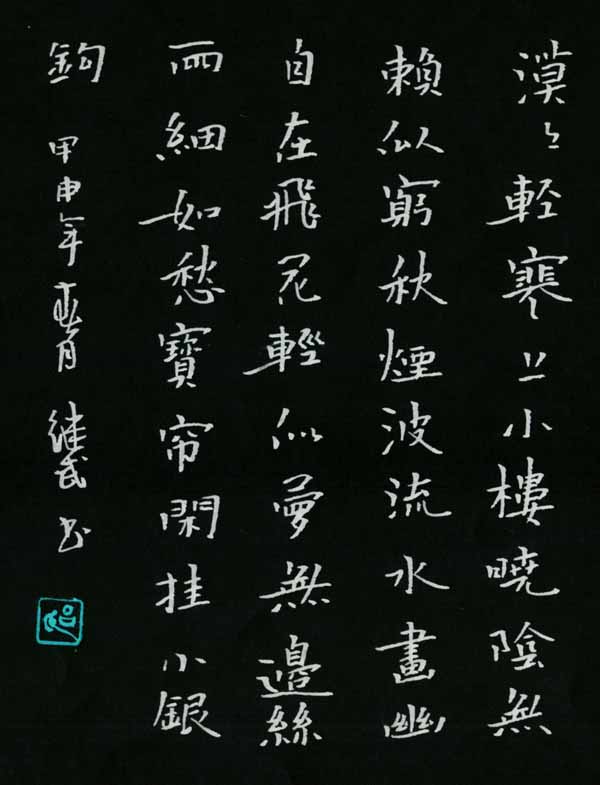 漠〻軽寒上小樓曉陰無
賴似窮秋煙波流水畫幽
自在飛花輕似夢無邊絲
雨細如愁寶帘閑挂小銀
鉤 甲申年 月 继武 书